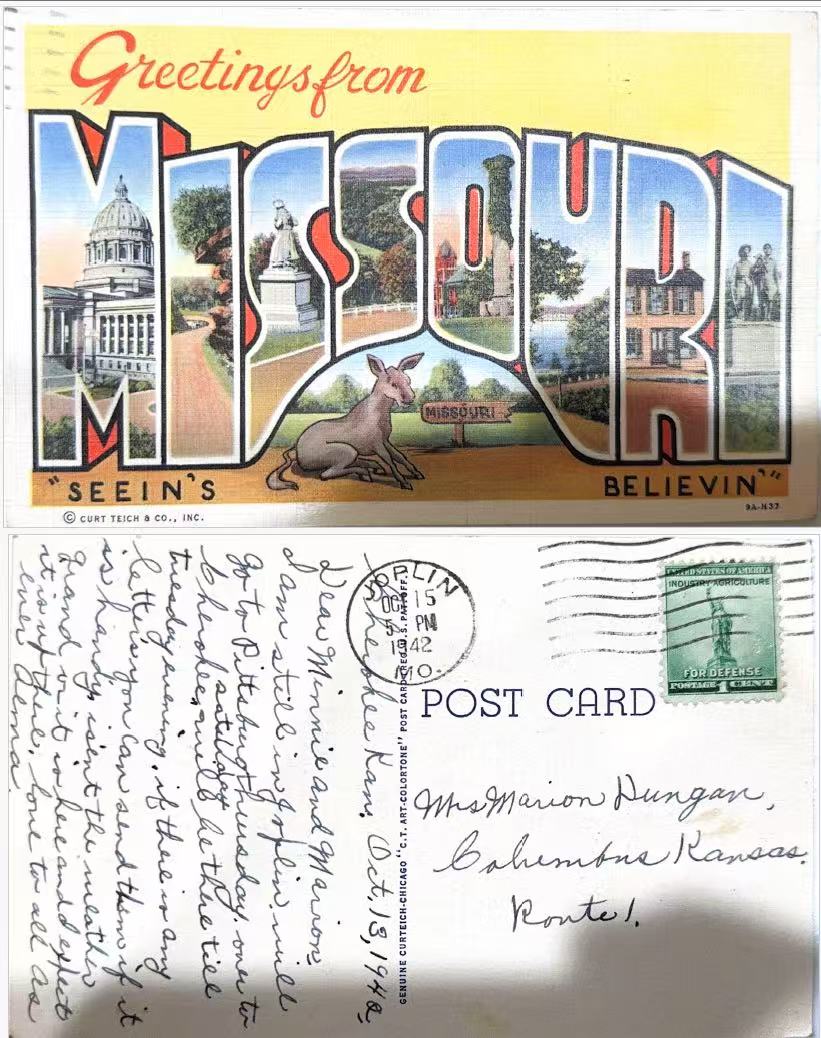 Greetings from
MISSOURI
MISSOURI
"SEEIN'S
BELIEVIN'"
© CURT TEICH & CO., INC.
9A-H37
Cherokee Kans. Oct. 13, 1942.
Dear Minnie and Marion:
I am still in Joplin, will
go to Pittsburg thursday, over to
saturday
Cherokee, will be there till
tuesday evening, if there is any
letters you can send them if it
is handy, isent the weather
Grand or it is here and I expect
it is up there, love to all as
ever Alma
GENUINE CURTEICH-CHICAGO "C.T. ART-COLORTONE" POST CARD REG. U.S. PAT. OFF.
JOPLIN
OCT 15
PM
1942
MO.
UNITED STATES OF AMERICA
INDUSTRY AGRICULTURE
FOR DEFENSE
POSTAGE 1 CENT
POST CARD
Mrs Marion Dungan,
Columbus Kansas.
Route 1.